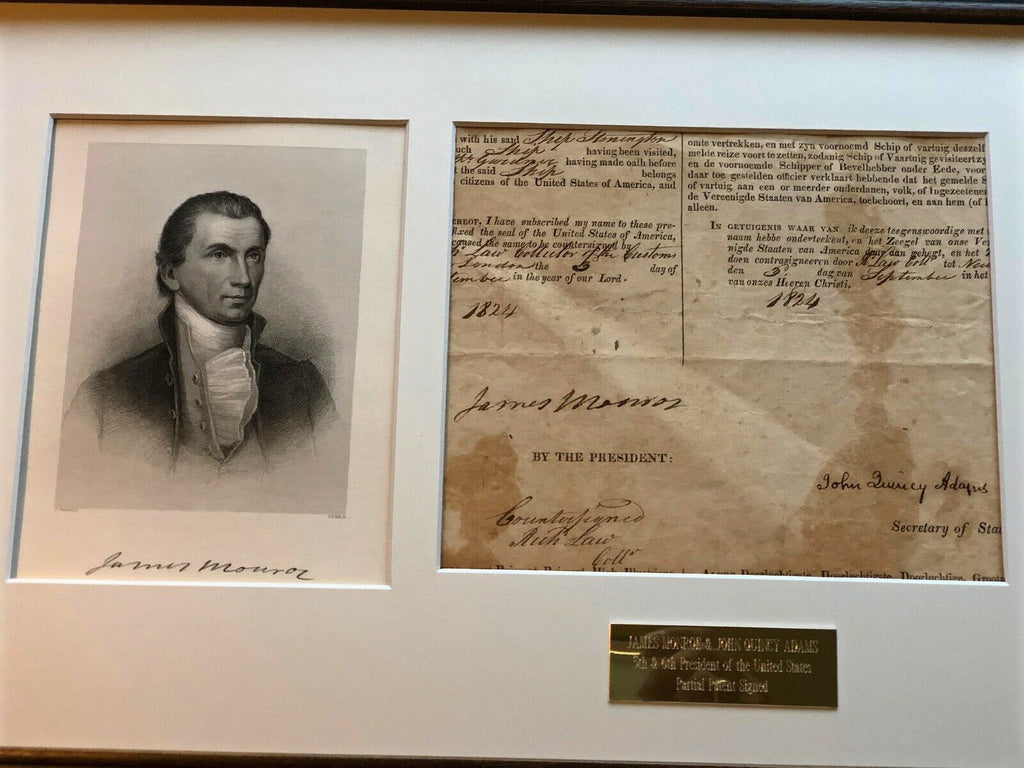 James Monroe
with his said Ship Stonington
uch Ship having been visited,
Gardner having made oath before
t the said Ship belongs
citizens of the United States of America, and
EREOF, I have subscribed my name to these pre-
ffixed the seal of the United States of America,
caused the same to be countersigned by
Law Collector of the Customs
London the 3 day of
tember in the year of our Lord.
1824
omte vertrekken, en met zyn voornoemd Schip of vartuig deszelf
melde reize voort te zetten, zodanig Schip of Vaartuig gevisiteert zy
en de voornoemde Schipper of Bevelhebber onder Eede, voor
daar toe gestelden officier verklaart hebbende dat het gemelde S
of vartuig aan een or meerder onderdanen, volk, of Ingezeetene
de Vereenigde Staaten van America, toebehoort, en aan hem (of
alleen.
IN GETUIGENIS WAAR VAN, ik deeze tegenswoordige met
naam hebbe onderteekent, en het Zeegel van onse Ver
nigde Staaten van America daar aan gehegt, en het
doen contrasigneeren door R Law Collr tot New
den 3d dag van September in het
van onzes Heeren Christi.
1824
James Monroe
BY THE PRESIDENT:
John Quincy Adams
Secretary of Sta
Countersigned
Richd Law
Collr
JAMES MONROE & JOHN QUINCY ADAMS
5th & 6th President of the United States
Partial Patent Signed